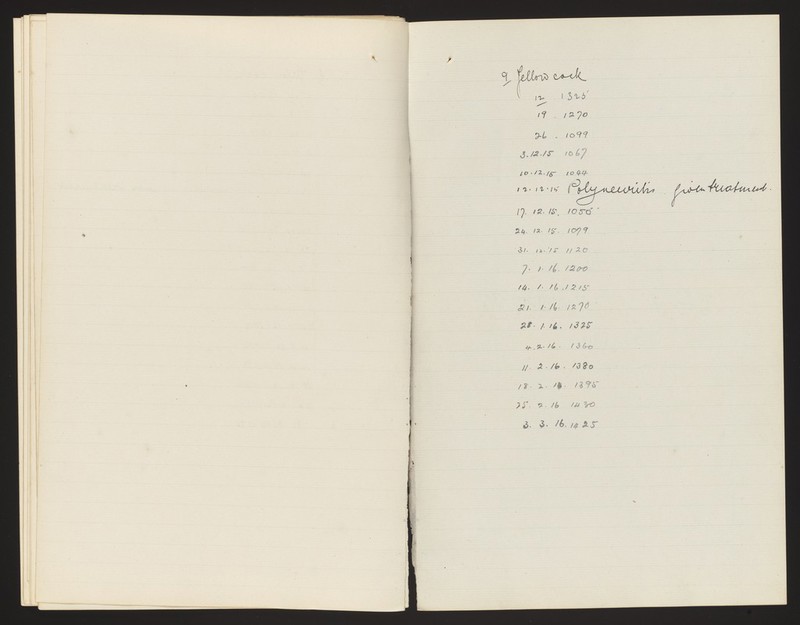 9 Yellow cock
12 1325
19 . 1270
26 . 1099
3.12.15 1067
10.12.15 1044
12.12.15 Polyneuritis given treatment.
17.12.15. 1055
24.12.15. 1079
31.12.15 1120
7.1.16.1200
14.1.16.1215
21.1.16.1270
28.1.16.1325
4.2.16. 1360
11.2.16. 1380
18.2.16. 1395
25.2.16 1430
3.3.16.1425